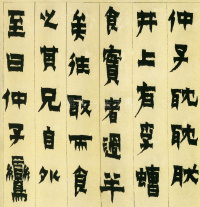 仲子耽耽
井上有李螬
食實者過半
矣往取而食
之其兄自外
至曰仲子